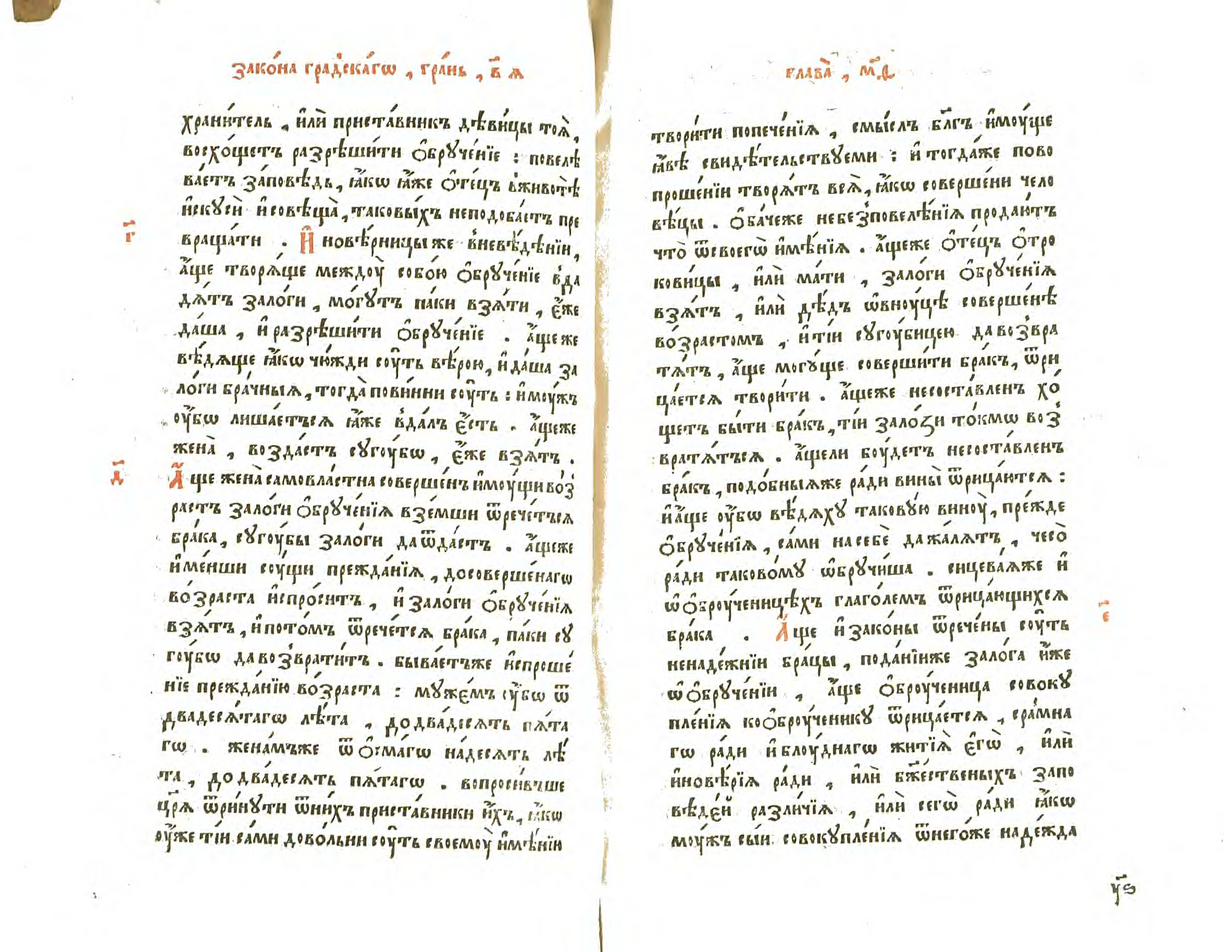 Зако́на гра́дскагѡ , гра́нь , в҃ ꙗ
храни́тель , и҆лѝ приста́вникъ дѣви́цы тоѧ̀,
восхо́щетъ разрѣши́ти ѻ҆брꙋче́нїе : повелѣ
ва́етъ за́повѣдь, ꙗ҆́кѡ ꙗ҆́же ѻ҆те́цъ вживотѣ̀
и҆скꙋсѝ и҆совѣща̀, таковы́хъ неподоба́етъ пре
враща́ти . И҆ новѣ́рницы же вневѣ́дѣнїи,
г҃
а҆́ще творѧ́ще междоу̀ собо́ю ѻ҆брꙋче́нїе вда
дѧ́тъ зало́ги , мо́гꙋтъ па́ки взѧ́ти , є҆́же
да́ша , и҆ разрѣши́ти ѻ҆брꙋче́нїе . а҆́ще же
вѣ́дѧще ꙗ҆́кѡ чю́жди соу́ть вѣ́рою, и҆ да́ша за
ло́ги бра́чныѧ, тогда̀ пови́нни соу́ть : и҆ моу́жъ
оу҆́бѡ лиша́етьсѧ ꙗ҆́же вда́лъ є҆́сть . а҆́щеже
жена̀ , возда́стъ сꙋгоу́бѡ , є҆́же взѧ́тъ .
д҃
А҆́ ще жена̀ самовла́стна соверше́нъ и҆моу́щи во́з
растъ зало́ги ѻ҆брꙋче́нїѧ взе́мши ѿрече́тьсѧ
бра́ка , сꙋгоу́бы зало́ги да ѿда́стъ . а҆́щеже
и҆ ме́нши соу́щи прежда́нїѧ , досоверше́нагѡ
во́зраста и҆спро́ситъ , и҆ зало́ги ѻ҆брꙋче́нїѧ
взѧ́тъ , и҆ пото́мъ ѿрече́тсѧ бра́ка , па́ки сꙋ
гоу́бѡ да возврати́тъ . быва́етъже и҆спроше́
нїе прежда́нїю во́зраста : мꙋже́мъ оу҆́бѡ ѿ
двадесѧ́тагѡ лѣ́та , до два́десѧть пѧ́та
гѡ . жена́мъже ѿ ѻ҆смагѡ на́десѧть лѣ́
та , до два́десѧть пѧ́тагѡ . вопроси́въше
цр҃ѧ̀ ѿри́нꙋти ѿни́хъ приста́вники и҆́хъ, ꙗ҆́кѡ
оу҆́же ті́и са́ми дово́льни соу́ть своемоу̀ и҆мѣ́нїи
глава̀ , м҃д
твори́ти попече́нїѧ , смы́слъ бл҃гъ и҆моу́ще
ꙗ҆́вѣ свидѣ́тельствꙋеми : и҆ тогда́же пово
проше́нїи творѧ́тъ всѧ̀, ꙗ҆́кѡ соверше́ни чело
вѣ́цы . ѻ҆ба́чеже небезповеле́нїѧ продаю́тъ
что̀ ѿсвоегѡ̀ и҆мѣ́нїѧ . а҆́щеже ѻ҆те́цъ ѻ҆тро
кови́цы , и҆лѝ ма́ти , зало́ги ѻ҆брꙋче́нїѧ
взѧ́тъ , и҆лѝ дѣ́дъ ѡ҆внꙋ́цѣ соверше́нѣ
во́зрастомъ , и҆ ті́и сꙋгоу́бицею да возвра
тѧ́тъ , а҆́ще могꙋ́ще соверши́ти бра́къ, ѿри
ца́етсѧ твори́ти . а҆́щеже несоста́вленъ хо́
щетъ бы́ти бра́къ, ті́и зало́ѕи то́кмѡ воз
вратѧ́тьсѧ . а҆́щели боу́детъ несоста́вленъ
бра́къ , подо́быѧже ра́ди вины̀ ѿрица́ютсѧ :
и҆ а҆́ще оу҆́бѡ вѣ́дѧхꙋ такову́ю виноу̀, пре́жде
ѻ҆брꙋче́нїѧ , са́ми на себѐ да жалѧ́тъ , чесо̀
ра́ди тако́вомꙋ ѡ҆брꙋчи́ша . сицева́ѧже и҆
ѡ҆ѻ҆броу́ченицѣхъ глаго́лемъ ѿрица́ющихсѧ
бра́ка . А҆́ще и҆ зако́ны ѿрече́ны соу́ть
є҃
ненаде́жнїи бра́цы , пода́нїиже зало́га и҆́же
ѡ҆ѻ҆брꙋче́нїи , а҆́ще ѻ҆броу́ченица совокꙋ
пле́нїѧ коѻ҆броу́ченикꙋ ѿрица́етсѧ , сра́мна
гѡ ра́ди и҆ блоу́днагѡ житїѧ̀ є҆гѡ̀ , и҆лѝ
и҆новѣ́рїѧ ра́ди , и҆лѝ бж҃е́ственыхъ запо
вѣде́й разли́чїѧ , и҆лѝ сегѡ̀ ра́ди ꙗ҆́кѡ
моу́жъ сы́и совокꙋпле́нїѧ ѿнего́же наде́жда
у҃ѕ